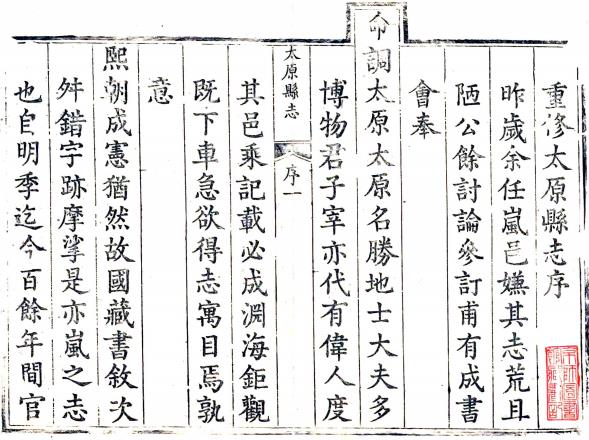 重修太原縣志序
昨歲余任嵐邑嫌其志荒且
陋公餘討論參訂甫有成書
會奉
命調太原太原名勝地士大夫多
博物君子宰亦代有偉人度
太原縣志
序一
其邑乘記載必成淵海鉅觀
既下車急欲得志寓目焉孰
意
熙朝成憲猶然故國藏書敘次
舛錯字跡摩挲是亦嵐之志
也自明季迄今百餘年間官